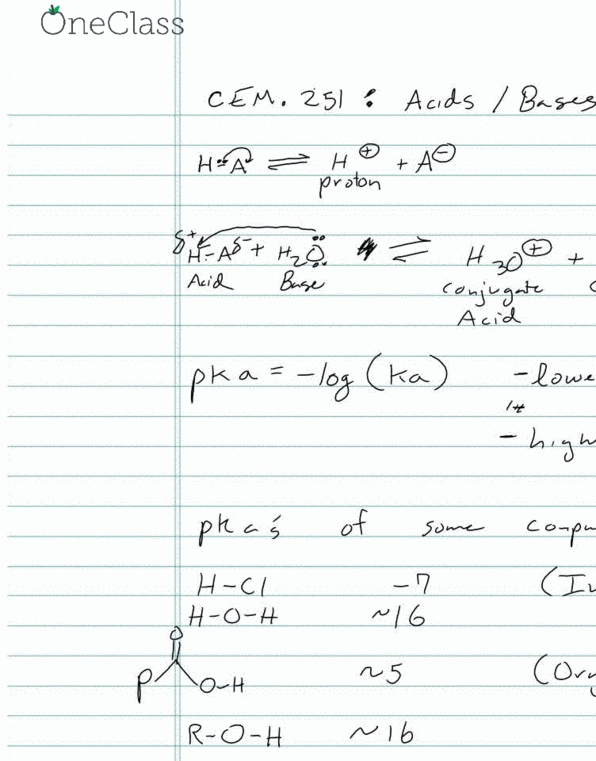 OneClass
CEM. 251 : Acids / Bases
H-A ⇌ H⊕ + A⊖
proton
δ+ H-A δ- + H2O ⇌ H3O⊕ +
Acid Base conjugate
Acid
pka = -log (ka) - lowe
- high
pka's of some compu
H-Cl -7 (In
H-O-H ~16
O
P O-H ~5 (Org
R-O-H ~16